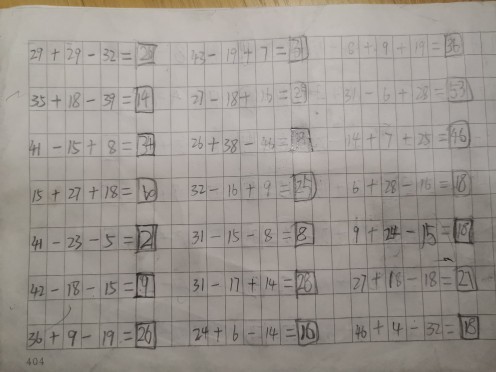 29 + 29 - 32 = 26 43 - 19 + 7 = 31 8 + 9 + 19 = 36
35 + 18 - 39 = 14 27 - 18 + 15 = 24 31 - 6 + 28 = 53
41 - 15 + 8 = 34 26 + 38 - = 14 + 7 + 25 = 46
15 + 27 + 18 = 60 32 - 16 + 9 = 25 6 + 28 - 16 = 18
41 - 23 - 5 = 12 31 - 15 - 8 = 8 9 + 24 - 15 = 18
42 - 18 - 15 = 9 31 - 17 + 14 = 28 27 + 18 - 18 = 27
36 + 9 - 19 = 26 24 + 6 - 14 = 16 46 + 4 - 32 = 18
404